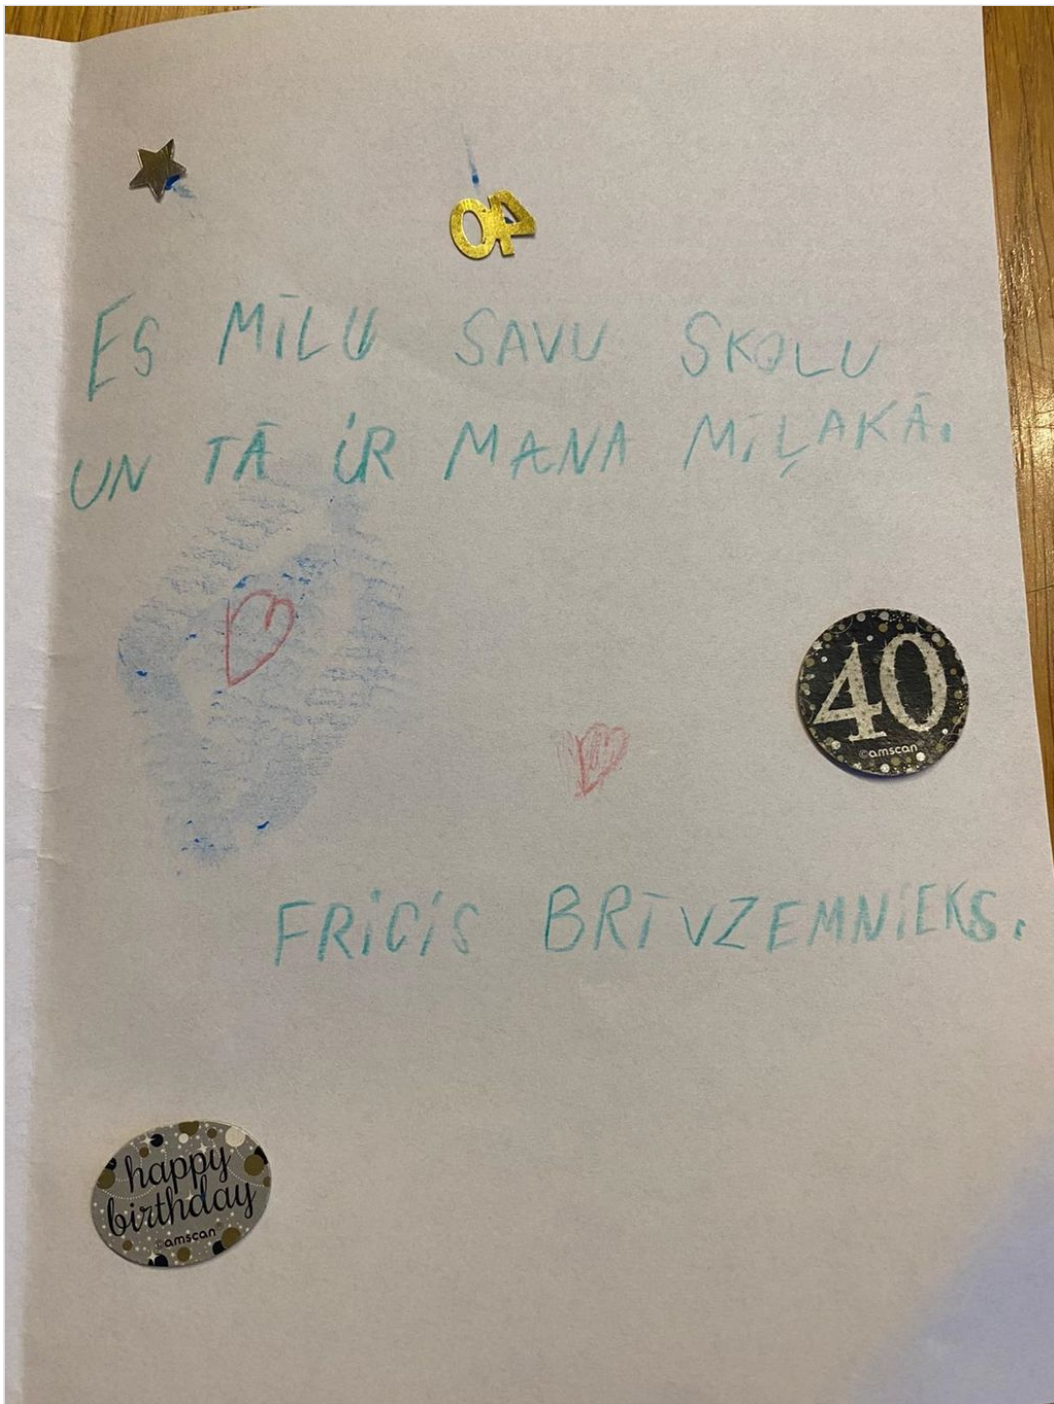 40
ES MĪLU SAVU SKOLU
UN TĀ IR MANA MĪĻAKĀ.
40
©amscan
FRICIS BRĪVZEMNIEKS.
happy
birthday
©amscan